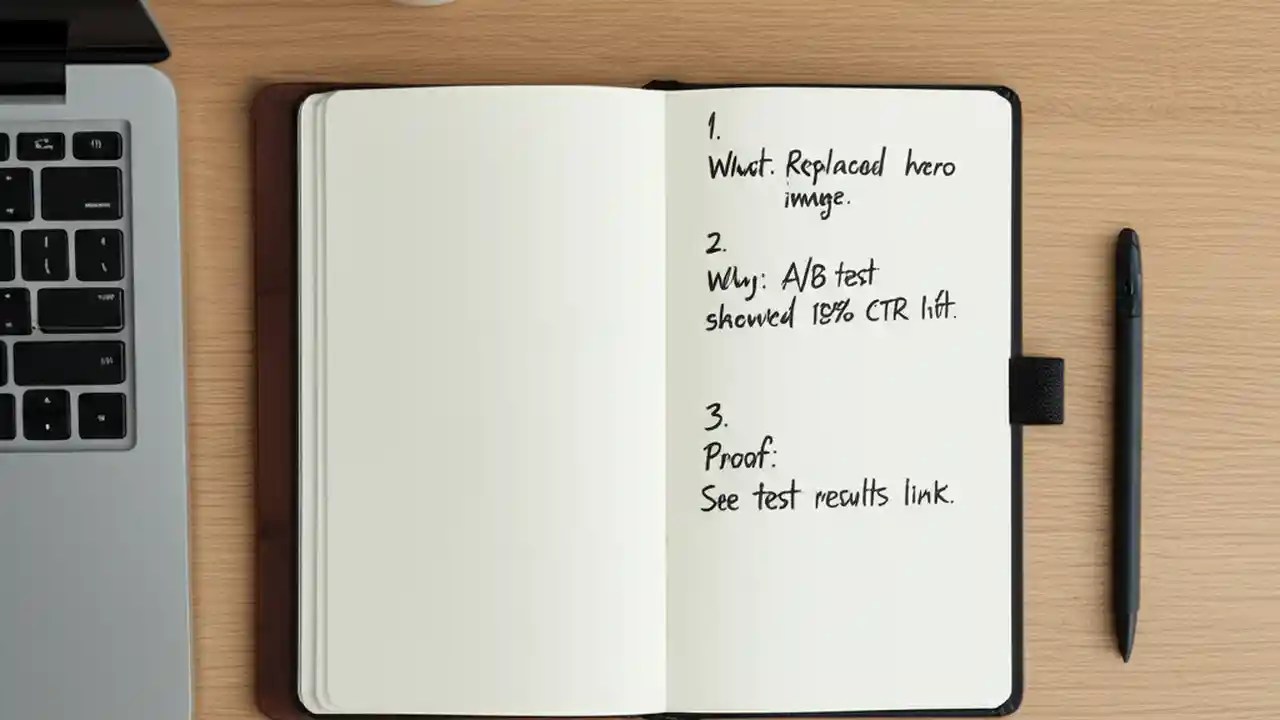 1.
What. Replaced hero
image.
2.
Why: A/B test
showed 18% CTR lift.
3.
Proof:
See test results link.